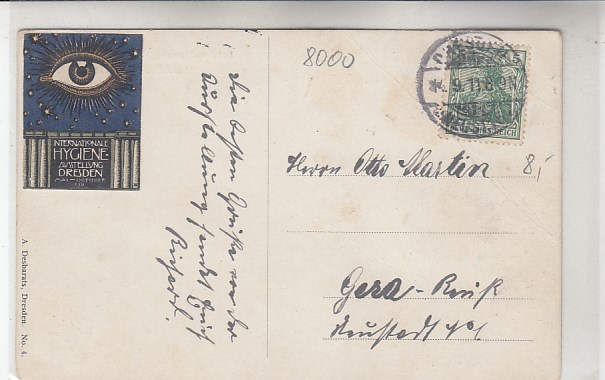 INTERNATIONALE
HYGIENE-
AUSSTELLUNG
DRESDEN
MAI-OCTOBER
A. Desbarats, Dresden. No. 4.
Die besten Grüße von der
Ausstellung sendet Euch
Richard.
8000
9.11.8
REICH
Herrn Otto Martin
8,-
Gera-Reuß
Neustadt